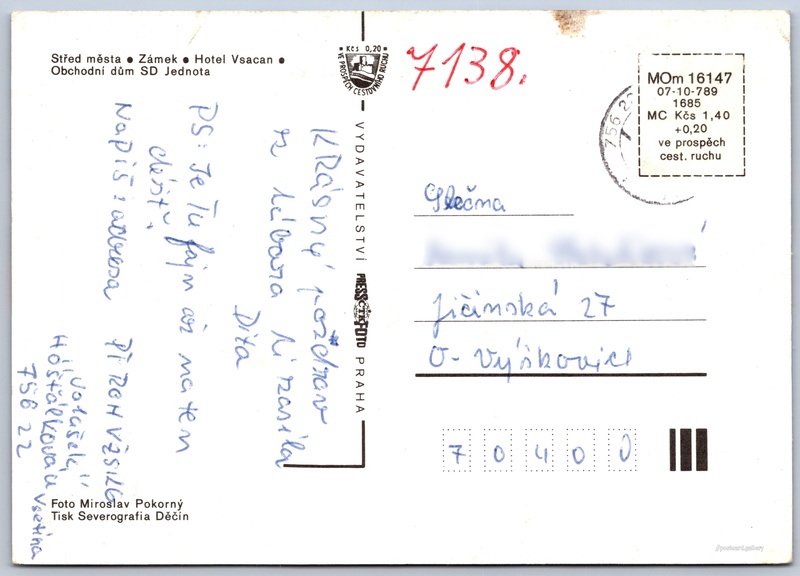 Střed města ● Zámek ● Hotel Vsacan ●
Obchodní dům SD Jednota
Kčs 0,20
VE PROSPĚCH CESTOVNÍHO RUCHU
7138.
756 22
MOm 16147
07-10-789
1685
MC Kčs 1,40
+0,20
ve prospěch
cest. ruchu
Krásný pozdrav
z tábora ti zasílá
Dita
PS: Je tu fajn až na ten
déšť.
Napiš: adresa
Hošťálková u Vsetína
756 22
VYDAVATELSTVÍ PRESSFOTO PRAHA
ČTK
Slečna
Jičínská 27
O- Výškovice
70400
Foto Miroslav Pokorný
Tisk Severografia Děčín